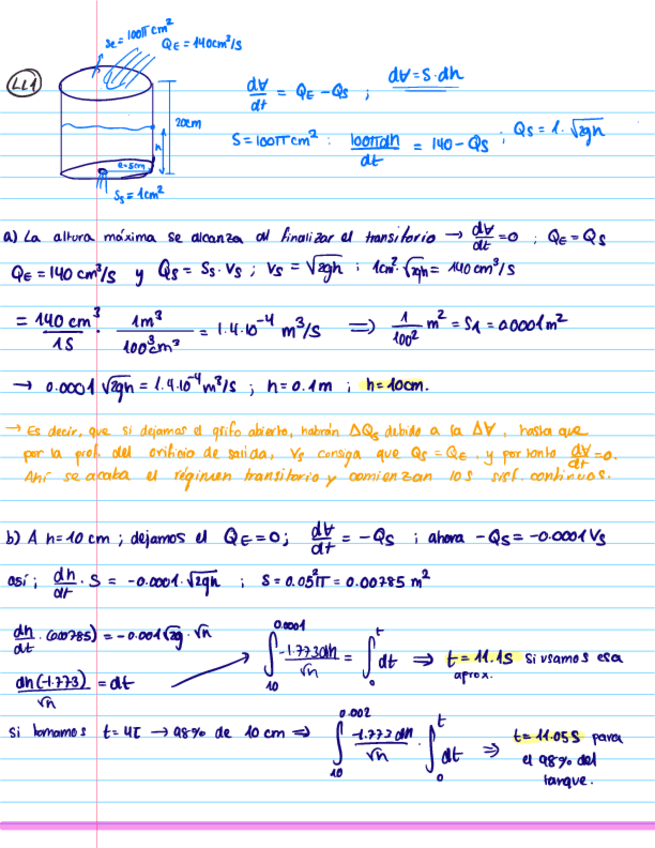 LL1
Se = 100π cm²
Q_E = 140cm³/s
20cm
h
Ss = 1cm²
d∀/dt = Q_E - Q_S ; d∀ = S·dh
S = 100π cm² : 100π dh/dt = 140 - Q_S ; Q_S = 1·√2gh
a) La altura máxima se alcanza al finalizar el transitorio → d∀/dt = 0 ; Q_E = Q_S
Q_E = 140 cm³/s y Q_S = S_S · V_S ; V_S = √2gh ; 1cm²·√2gh = 140 cm³/s
= 140 cm³/1s · 1m³/100³cm³ = 1.4·10⁻⁴ m³/s ⇒ 1/100² m² = S1 = 0.0001m²
→ 0.0001 √2gh = 1.4·10⁻⁴ m³/s ; h = 0.1m ; h = 10cm.
→ Es decir, que si dejamos el grifo abierto, habrán ΔQs debido a la Δ∀, hasta que
por la prof. del orificio de salida, Vs consiga que Q_S = Q_E, y por tanto d∀/dt = 0.
Ahí se acaba el régimen transitorio y comienzan los sist. continuos.
b) A h = 10 cm ; dejamos el Q_E = 0 ; d∀/dt = -Q_S ; ahora -Q_S = -0.0001 V_S
así ; dh/dt · S = -0.0001·√2gh ; S = 0.05²π = 0.00785 m²
dh/dt · (0.00785) = -0.001 √2g · √h
dh(-1.773)/√h = dt
∫₁₀^0.0001 -1.773dh/√h = ∫₀^t dt ⇒ t = 11.1s si usamos esa
aprox.
si tomamos t = 4τ → 98% de 10 cm ⇒ ∫₁₀^0.002 -1.773 dh/√h · ∫₀^t dt ⇒ t = 11.05s para
el 98% del
tanque.